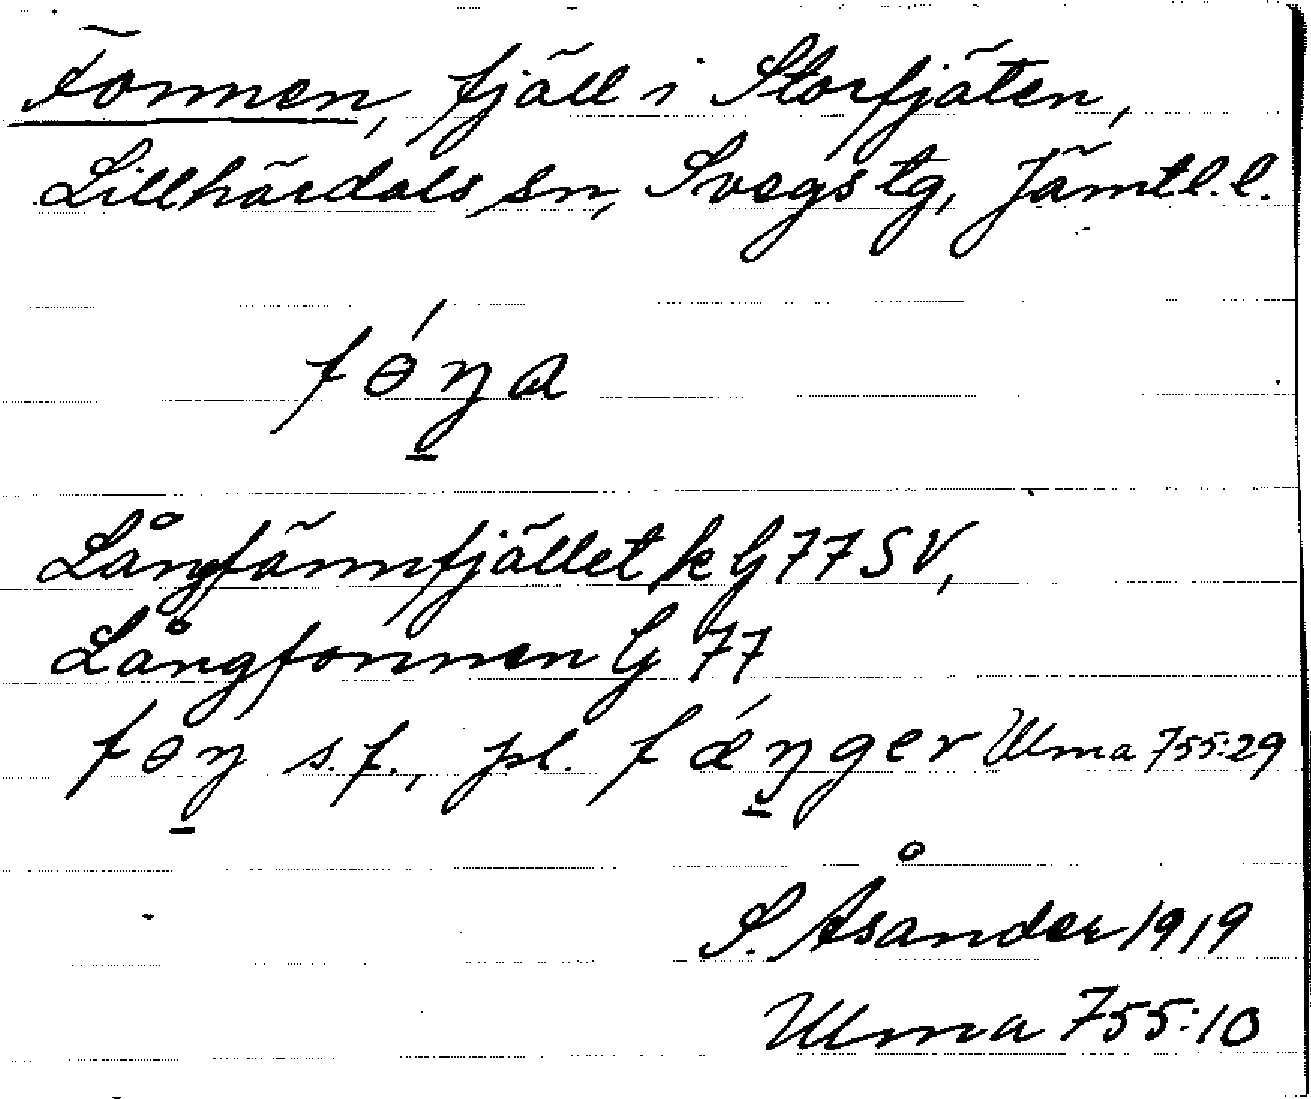 Fonnen, fjäll i Storfjäten,
Lillhärdals sn, Svegs tg, Jämtl. l.
fǿŋa
Långfännfjället k G 77 SV,
Långfonnen G 77
føŋ s.f., pl. fǽŋger Ulma 755:29
S. Åsander 1919
Ulma 755:10